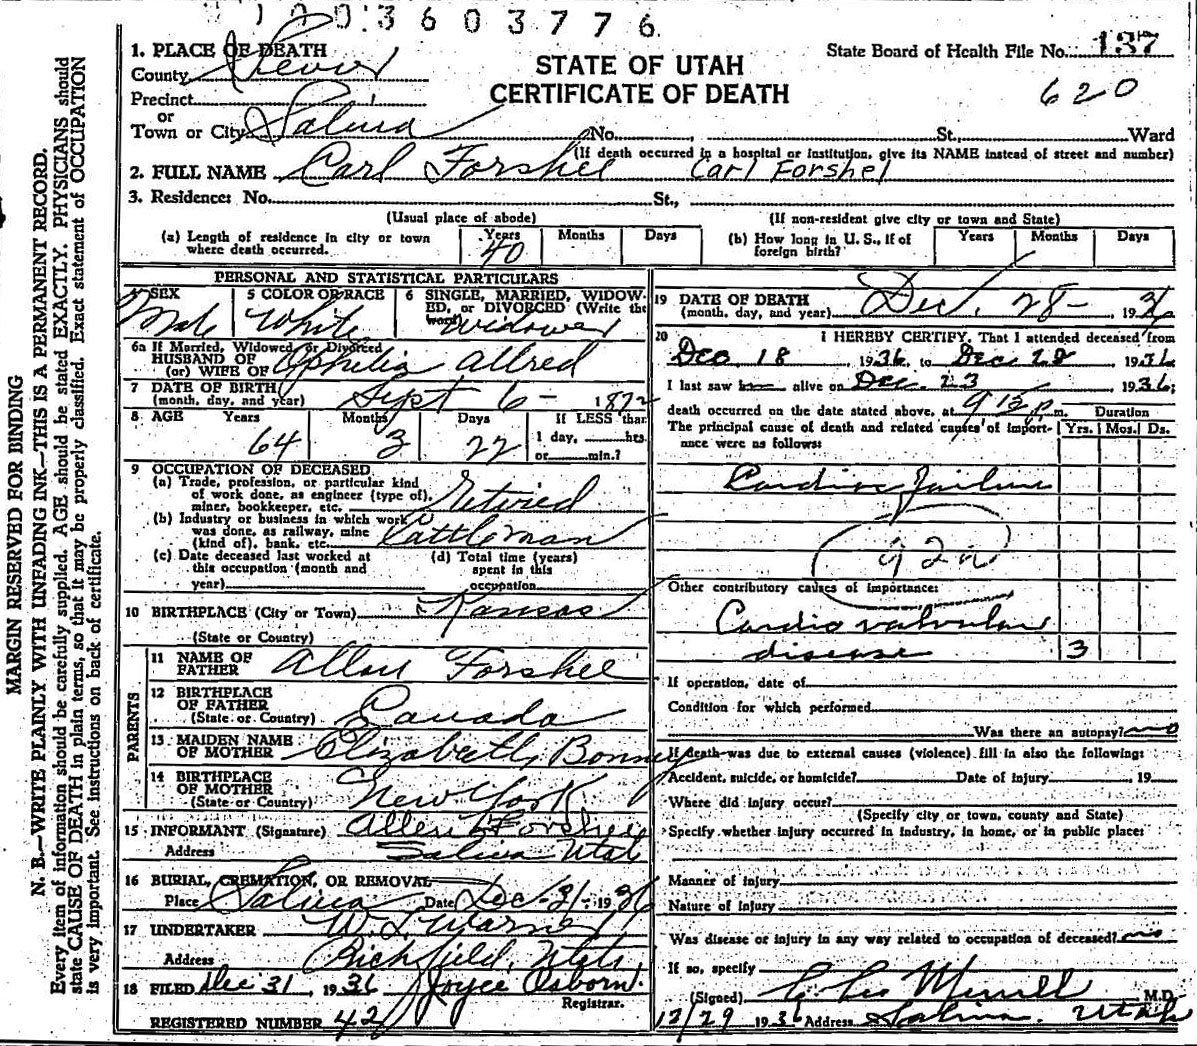 1003603776
1. PLACE OF DEATH
County Sevier
Precinct
or
Town or City Salina No. St. Ward
STATE OF UTAH
CERTIFICATE OF DEATH
State Board of Health File No. 137
620
(If death occurred in a hospital or institution, give its NAME instead of street and number)
2. FULL NAME Carl Forshee Carl Forshel
3. Residence: No. St.,
(Usual place of abode) (If non-resident give city or town and State)
(a) Length of residence in city or town where death occurred. Years 40 Months Days
(b) How long in U. S., if of foreign birth? Years Months Days
PERSONAL AND STATISTICAL PARTICULARS
4 SEX Male
5 COLOR OR RACE White
6 SINGLE, MARRIED, WIDOWED, or DIVORCED (Write the word) Widower
6a If Married, Widowed, or Divorced
HUSBAND OF
(or) WIFE OF Ophelia Allred
7 DATE OF BIRTH
(month, day, and year) Sept 6 - 1872
8 AGE Years 64 Months 3 Days 22 If LESS than 1 day, hrs. or min.?
9 OCCUPATION OF DECEASED
(a) Trade, profession, or particular kind of work done, as engineer (type of), miner, bookkeeper, etc. Retired
(b) Industry or business in which work was done, as railway, mine (kind of), bank, etc. Cattleman
(c) Date deceased last worked at this occupation (month and year)
(d) Total time (years) spent in this occupation
10 BIRTHPLACE (City or Town) Kansas
(State or Country)
PARENTS
11 NAME OF FATHER Allen Forshee
12 BIRTHPLACE OF FATHER
(State or Country) Canada
13 MAIDEN NAME OF MOTHER Elizabeth Bonney
14 BIRTHPLACE OF MOTHER
(State or Country) New York
15 INFORMANT (Signature) Allen Forshee
Address Salina Utah
16 BURIAL, CREMATION, OR REMOVAL
Place Salina Date Dec. 31 - 1936
17 UNDERTAKER W. L. Warner
Address Richfield, Utah.
18 FILED Dec 31, 1936 Joyce Osborn.
Registrar.
REGISTERED NUMBER 42
19 DATE OF DEATH
(month, day, and year) Dec. 28 - 1936
20 I HEREBY CERTIFY, That I attended deceased from
Dec. 18 1936 to Dec 28 1936
I last saw alive on Dec. 23 1936;
death occurred on the date stated above, at 9 p. m.
The principal cause of death and related causes of importance were as follows:
Duration
Yrs. Mos. Ds.
Cardiac failure
92a
Other contributory causes of importance:
Cardio valvular
disease 3
If operation, date of
Condition for which performed
Was there an autopsy? no
If death was due to external causes (violence) fill in also the following:
Accident, suicide, or homicide? Date of injury , 19
Where did injury occur?
(Specify city or town, county and State)
Specify whether injury occurred in industry, in home, or in public place:
Manner of injury
Nature of injury
Was disease or injury in any way related to occupation of deceased? no
If so, specify
(Signed) Merrill M.D.
12/29 1936 Address Salina. Utah
MARGIN RESERVED FOR BINDING
N. B.—WRITE PLAINLY WITH UNFADING INK—THIS IS A PERMANENT RECORD.
Every item of information should be carefully supplied. AGE should be stated EXACTLY. PHYSICIANS should
state CAUSE OF DEATH in plain terms, so that it may be properly classified. Exact statement of OCCUPATION
is very important. See instructions on back of certificate.